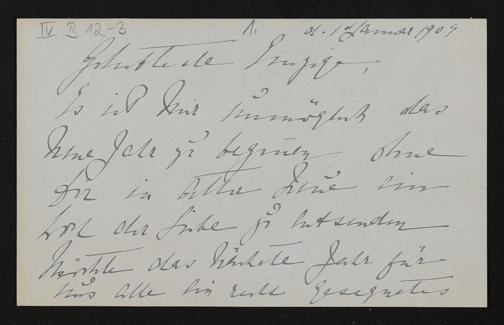 IV B 12-3 1. d. 1 Januar 1909
Geliebteste Einzige,
Es ist mir unmöglich das
Neue Jahr zu beginnen, ohne
Dir in alter Treue ein
Wort der Liebe zu entsenden
Möchte das nächste Jahr für
uns alle ein recht gesegnetes